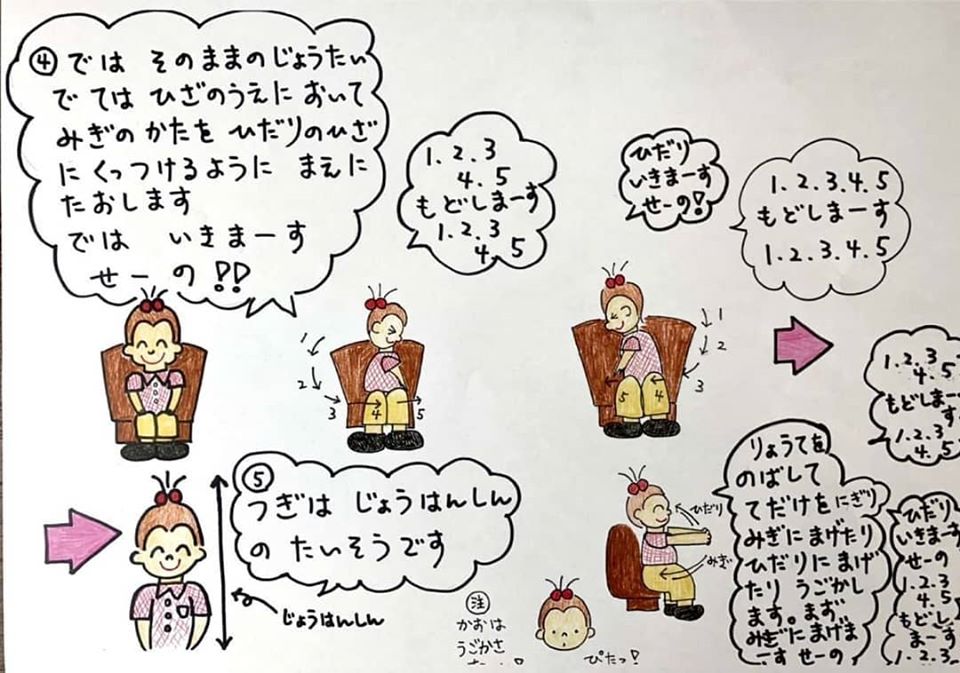 ④では そのままのじょうたい
で ては ひざのうえに おいて
みぎの かたを ひだりのひざ
に くっつけるように まえに
たおします
では いきまーす
せーの!!
1.2.3
4.5
もどしまーす
1.2.3
4.5
ひだり
いきまーす
せーの!
1.2.3.4.5
もどしまーす
1.2.3.4.5
1
2
3
4
5
1
2
3
4
5
1.2.3
4.5
もどしまー
す
1.2.3
4.5
⑤
つぎは じょうはんしん
の たいそうです
じょうはんしん
注
かおは
うごかさ
ぴたっ!
ひだり
みぎ
りょうてを
のばして
てだけを にぎり
みぎに まげたり
ひだりに まげ
たり うごかし
ます。まず
みぎに まげま
す せーの
ひだり
いきまーす
せーの
1.2.3
4.5
もどし
まーす
1.2.3